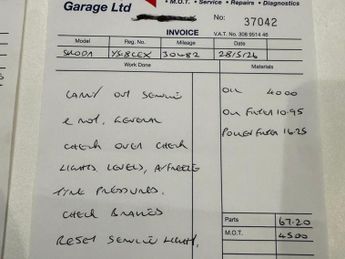 Garage Ltd
• M.O.T. • Service • Repairs • Diagnostics
No: 37042
INVOICE
V.A.T. No. 308 9514 46
Model Reg. No. Mileage Date
SKODA 30482 28/5/26
Work Done Materials
CARRY OUT SERVICE OIL 40 00
& MOT. GENERAL OIL FILTER 10.95
CHECK OVER CHECK POLLEN FILTER 16.25
LIGHTS LEVELS, A/FREEZE
TYRE PRESSURES.
CHECK BRAKES
RESET SERVICE LIGHT.
Parts 67.20
M.O.T. 45 00